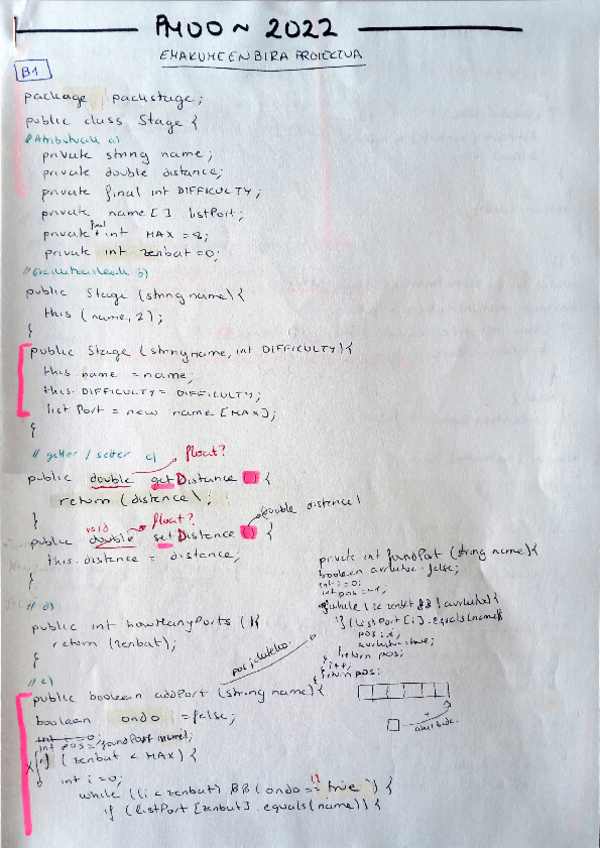 PMOO ~ 2022
EMAKUMEEN BIRA PROIEKTUA
B1
package packstage;
public class Stage {
// Atributuak a)
private string name;
private double distance;
private final int DIFFICULTY;
private name[] listPort;
private final int MAX = 8;
private int zenbat=0;
// Eraikitzaileak b)
public Stage (string name){
this (name, 2);
}
public Stage (string name, int DIFFICULTY){
this name = name;
this. DIFFICULTY = DIFFICULTY;
list Port = new name [MAX];
}
// getter / setter c)
float?
public double getDistance () {
return (distance);
}
void float?
double distance)
public double setDistance () {
this. distance = distance;
}
// d)
public int howManyPorts (){
return (zenbat);
}
// e)
public boolean addPort (string name){
boolean ondo = false;
int i = 0;
int pos = foundPort name);
if (zenbat < MAX) {
int i = 0;
while ((i < zenbat) && (ondo == true) {
if (listPort [zenbat]. equals(name)) {
private int foundPort (string name){
boolean aurkitua = false;
int i = 0;
int pos = -1;
while (i < zenbat && ! aurkitua){
if (listPort [i]. equals(name){
pos = i;
aurkitua = true;
} return pos;
} i++;
} return pos;